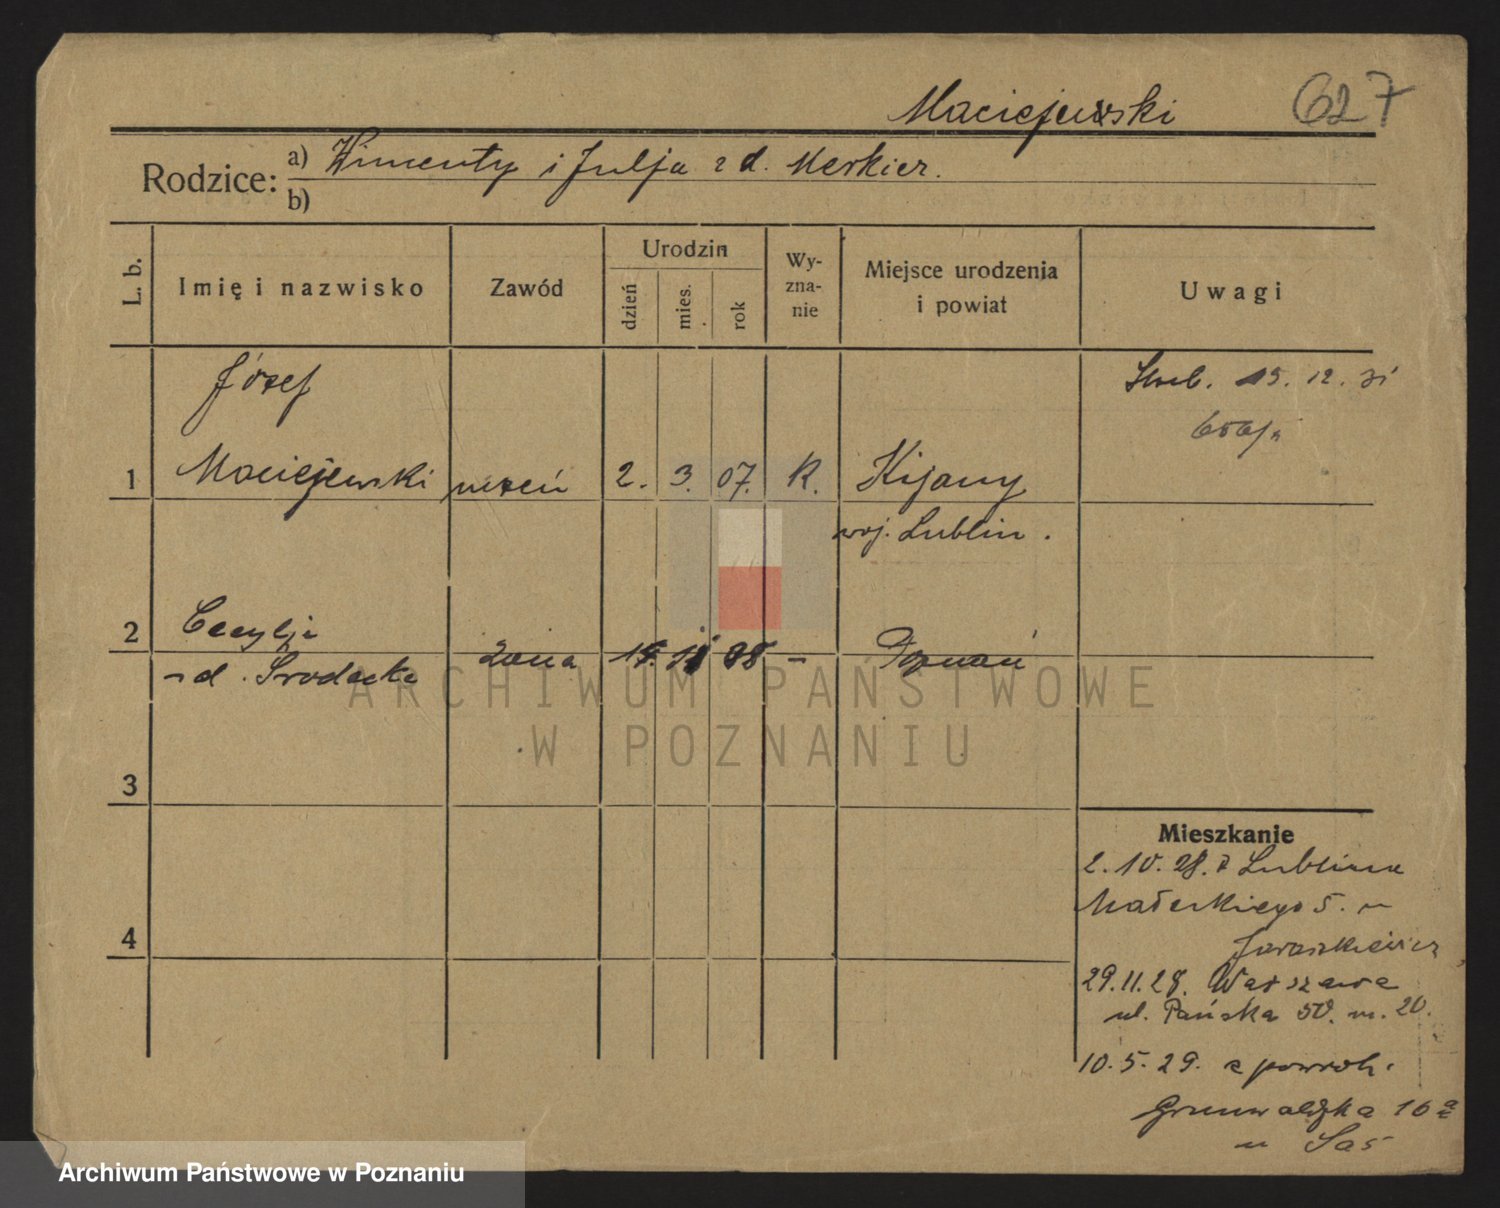 Maciejewski
627
Rodzice: a) Klimenty i Julja z d. Merkier.
b)
L. b.
Imię i nazwisko
Zawód
Urodzin
dzień
mies.
rok
Wy-
zna-
nie
Miejsce urodzenia
i powiat
Uwagi
Józef
15. 12. 31
1 Maciejewski uczeń 2. 3. 07. R. Kijany
woj. Lublin.
2 Cecylja
żona 98 - Poznań
z d. Srodecka
ARCHIWUM PAŃSTWOWE
W POZNANIU
3
4
Mieszkanie
2. 10. 28. z Lublina
Małeckiego 5. u
Jaraszkiewicz
29. 11. 28. Warszawa
ul. Pańska 50. m. 20.
10. 5. 29. z powrot.
Grunwaldzka 16a
u Sas
Archiwum Państwowe w Poznaniu